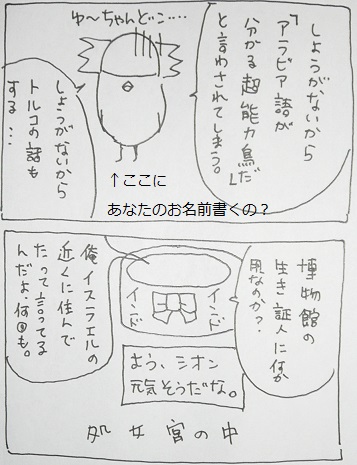 ゆ〜ちゃんどこ....
しょうがないから
「アラビア語が
分かる超能力鳥だ」
と言わされてしまう。
しょうがないから
トルコの話も
する…
↑ここに
あなたのお名前書くの？
博物館の
生き証人に何か
用なのか？
インド
インド
俺イスラエルの
近くに住んで
たって言ってる
んだよ何回も。
よう、シオン
元気そうだな。
処女宮の中